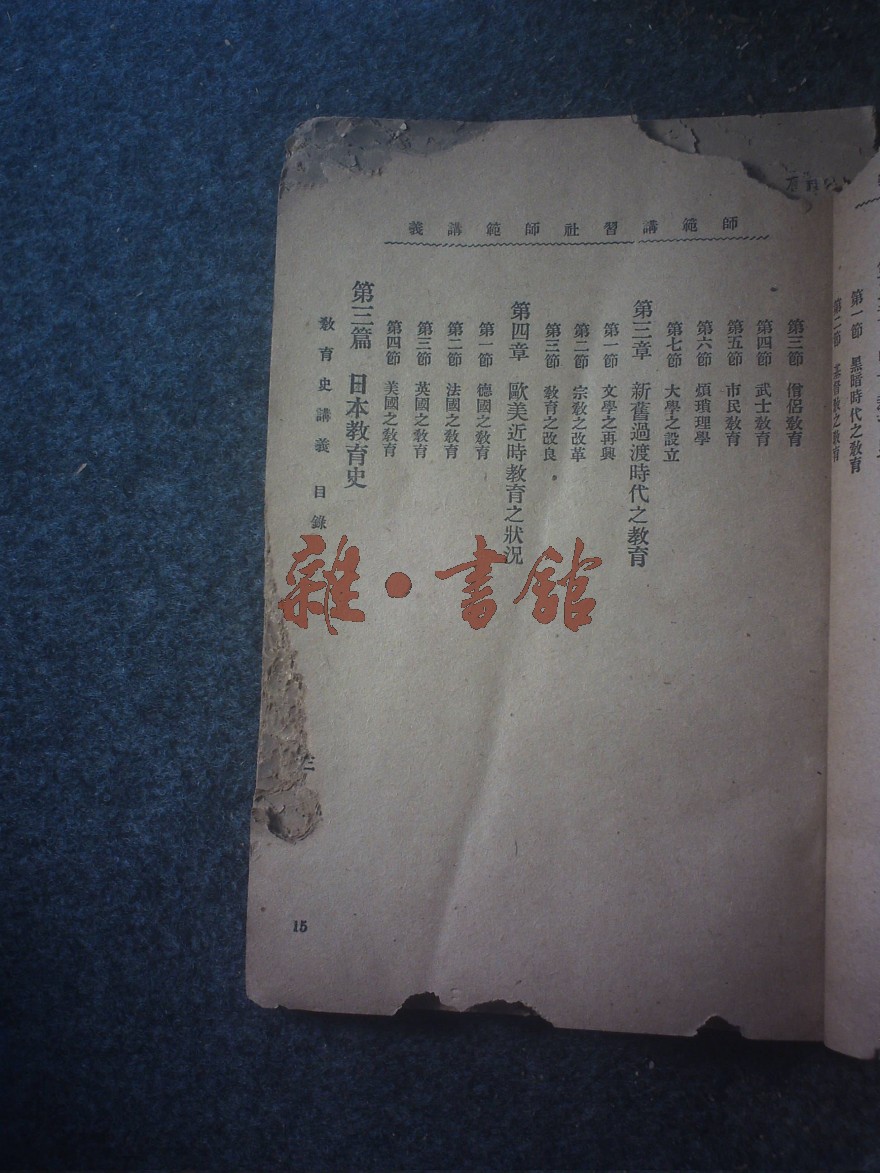 師範講習社師範講義
第一節　黑暗時代之教育
第二節　基督教之教育
第三節　僧侶教育
第四節　武士教育
第五節　市民教育
第六節　煩瑣理學
第七節　大學之設立
第三章　新舊過渡時代之教育
第一節　文學之再興
第二節　宗教之改革
第三節　教育之改良
第四章　歐美近時教育之狀況
第一節　德國之教育
第二節　法國之教育
第三節　英國之教育
第四節　美國之教育
第三篇　日本教育史
教育史講義　目錄
15
雜·書館